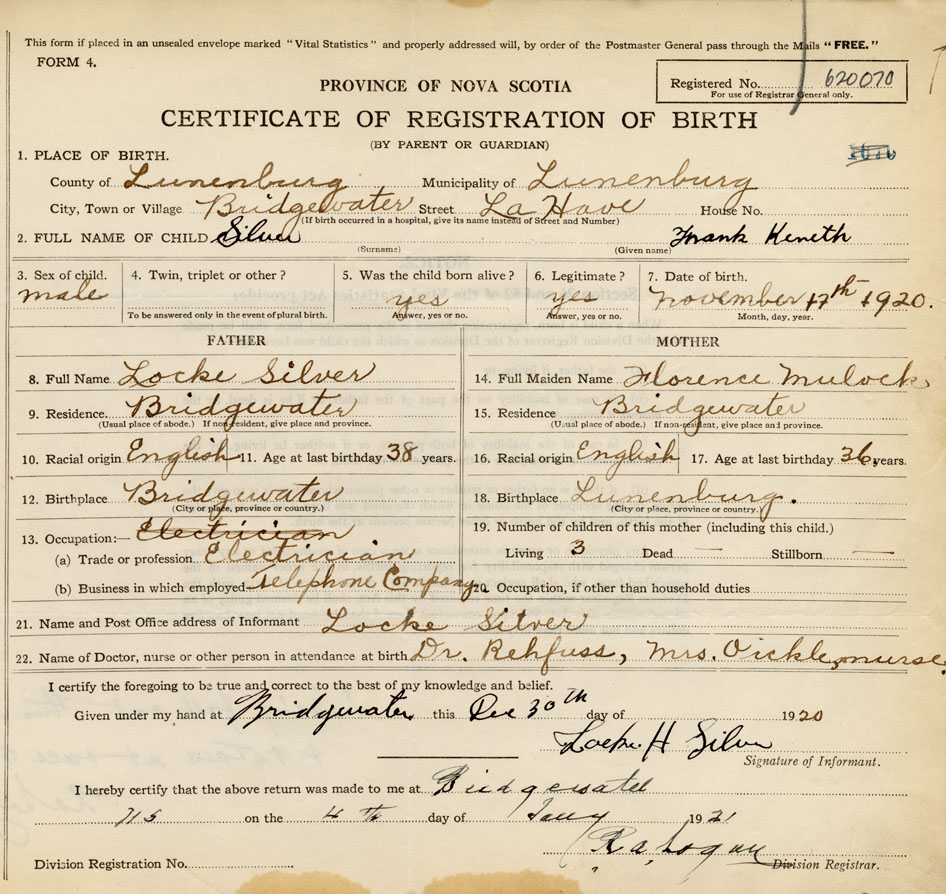 This form if placed in an unsealed envelope marked "Vital Statistics" and properly addressed will, by order of the Postmaster General pass through the Mails "FREE."
FORM 4.
Registered No. 620070
For use of Registrar General only.
PROVINCE OF NOVA SCOTIA
CERTIFICATE OF REGISTRATION OF BIRTH
(BY PARENT OR GUARDIAN)
1. PLACE OF BIRTH.
County of Lunenburg Municipality of Lunenburg
City, Town or Village Bridgewater Street La Have House No.
(If birth occurred in a hospital, give its name instead of Street and Number)
2. FULL NAME OF CHILD Silver Frank Keneth
(Surname) (Given name)
3. Sex of child. 4. Twin, triplet or other? 5. Was the child born alive? 6. Legitimate? 7. Date of birth.
male yes yes November 17th 1920.
To be answered only in the event of plural birth. Answer, yes or no. Answer, yes or no. Month, day, year.
FATHER MOTHER
8. Full Name Locke Silver 14. Full Maiden Name Florence Mulock
9. Residence. Bridgewater 15. Residence Bridgewater
(Usual place of abode.) If non-resident, give place and province. (Usual place of abode.) If non-resident, give place and province.
10. Racial origin English 11. Age at last birthday 38 years. 16. Racial origin English 17. Age at last birthday 36 years.
12. Birthplace Bridgewater 18. Birthplace Lunenburg.
(City or place, province or country.) (City or place, province or country.)
13. Occupation:— Electrician 19. Number of children of this mother (including this child.)
(a) Trade or profession Electrician Living 3 Dead — Stillborn —
(b) Business in which employed Telephone Company 20. Occupation, if other than household duties
21. Name and Post Office address of Informant Locke Silver
22. Name of Doctor, nurse or other person in attendance at birth Dr. Rehfuss, Mrs. Oickle, nurse.
I certify the foregoing to be true and correct to the best of my knowledge and belief.
Given under my hand at Bridgewater this Dec 30th day of 1920
Locke H Silver
Signature of Informant.
I hereby certify that the above return was made to me at Bridgewater
NS on the 4th day of Jany 1921
R a Logan
Division Registration No. Division Registrar.